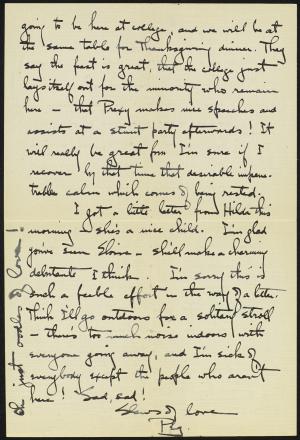 going to be here at college, and we will be at
the same table for Thanksgiving dinner. They
say the feast is great, that the college just
lays itself out for the minority who remain
here – that Prexy makes nice speeches and
assists at a stunt party afterwards! It
will really be great fun I'm sure if I
recover by that time that desirable impene-
trable calm which comes of being rested.
I got a little letter from Hilda this
morning – she's a nice child. I'm glad
you've seen Eloise – she'll make a charming
debutante I think. I'm sorry this is
such a feeble effort in the way of a letter.
Think I'll go outdoors for a solitary stroll
– there's too much noise indoors with
everyone going away, and I'm sick of
everybody except the people who aren't
here! Sad, sad!
Slews of love
Peg.
Oh just oodles of love!